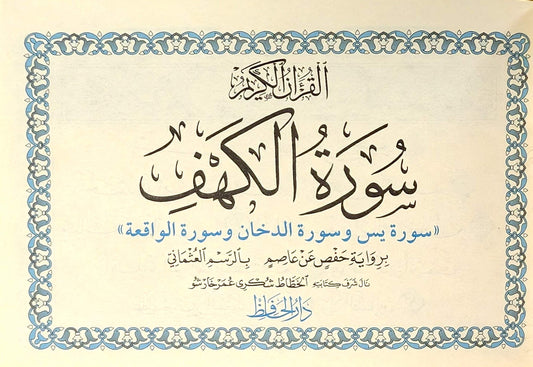 القرآن الكريم
سُورَةُ الكَهْفِ
«سورة يس وسورة الدخان وسورة الواقعة»
بِرِوَايَةِ حَفْصٍ عَنْ عَاصِمٍ بِالرَّسْمِ العُثْمَانِيّ
نَالَ شَرَفَ كِتَابَتِهِ الخَطَّاطُ شُكْرِي عُمَر خَارشُو
دار الحافظ